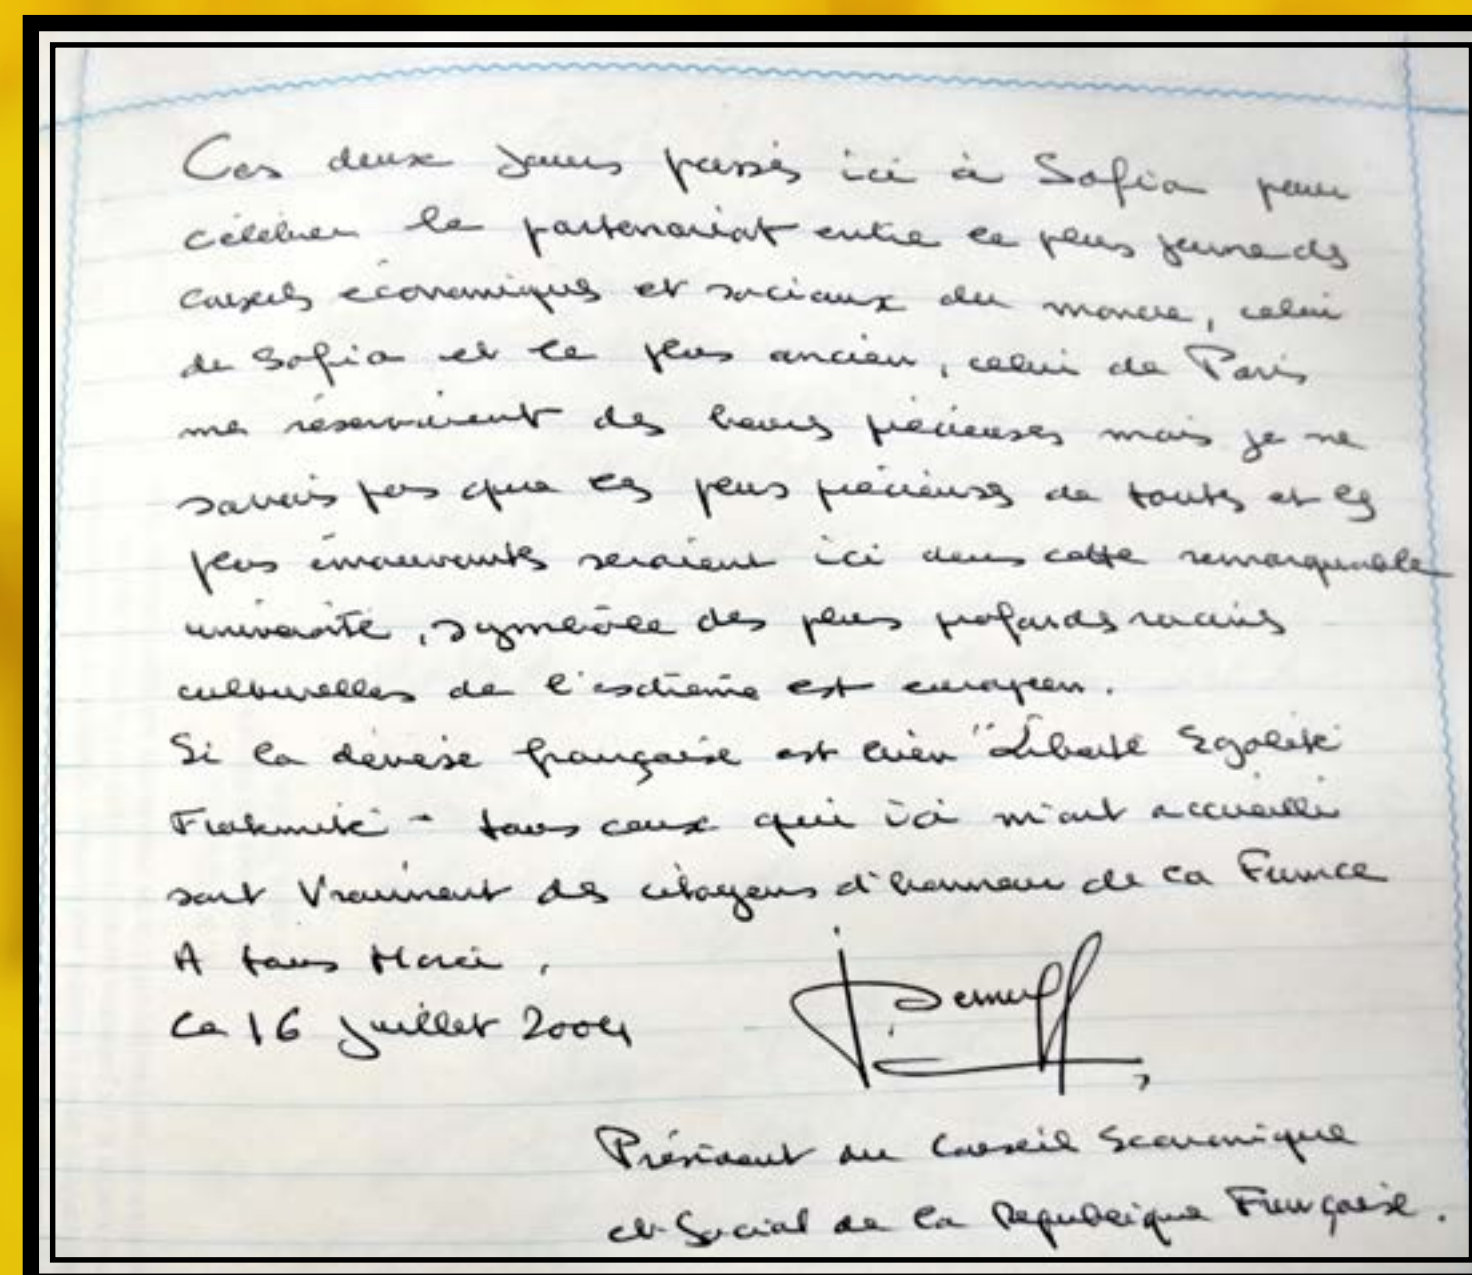 Ces deux jours passés ici à Sofia pour
célébrer le partenariat entre le plus jeune des
conseils économiques et sociaux du monde, celui
de Sofia et le plus ancien, celui de Paris
me réservaient des heures précieuses mais je ne
savais pas que les plus précieuses de toutes et les
plus émouvantes seraient ici dans cette remarquable
université, symbole des plus profondes racines
culturelles de l'extrême est européen.
Si la devise française est bien "Liberté Egalité
Fraternité - tous ceux qui ici m'ont accueilli
sont vraiment des citoyens d'honneur de la France
A tous Merci,
Ce 16 Juillet 2004
Président du Conseil Economique
et Social de la République Française.